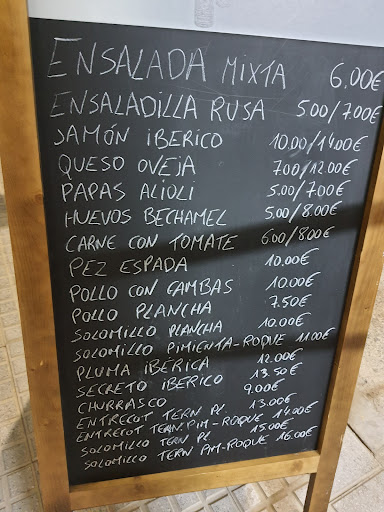 ENSALADA MIXTA 6.00€
ENSALADILLA RUSA 5.00/7.00€
JAMÓN IBERICO 10.00/14.00€
QUESO OVEJA 7.00/12.00€
PAPAS ALIOLI 5.00/7.00€
HUEVOS BECHAMEL 5.00/8.00€
CARNE CON TOMATE 6.00/8.00€
PEZ ESPADA 10.00€
POLLO CON GAMBAS 10.00€
POLLO PLANCHA 7.50€
SOLOMILLO PLANCHA 10.00€
SOLOMILLO PIMIENTA-ROQUE 11.00€
PLUMA IBÉRICA 12.00€
SECRETO IBÉRICO 13.50€
CHURRASCO 9.00€
ENTRECOT TERN PL 13.00€
ENTRECOT TERN.PIM-ROQUE 14.00€
SOLOMILLO TERN PL 15.00€
SOLOMILLO TERN PIM-ROQUE 16.00€